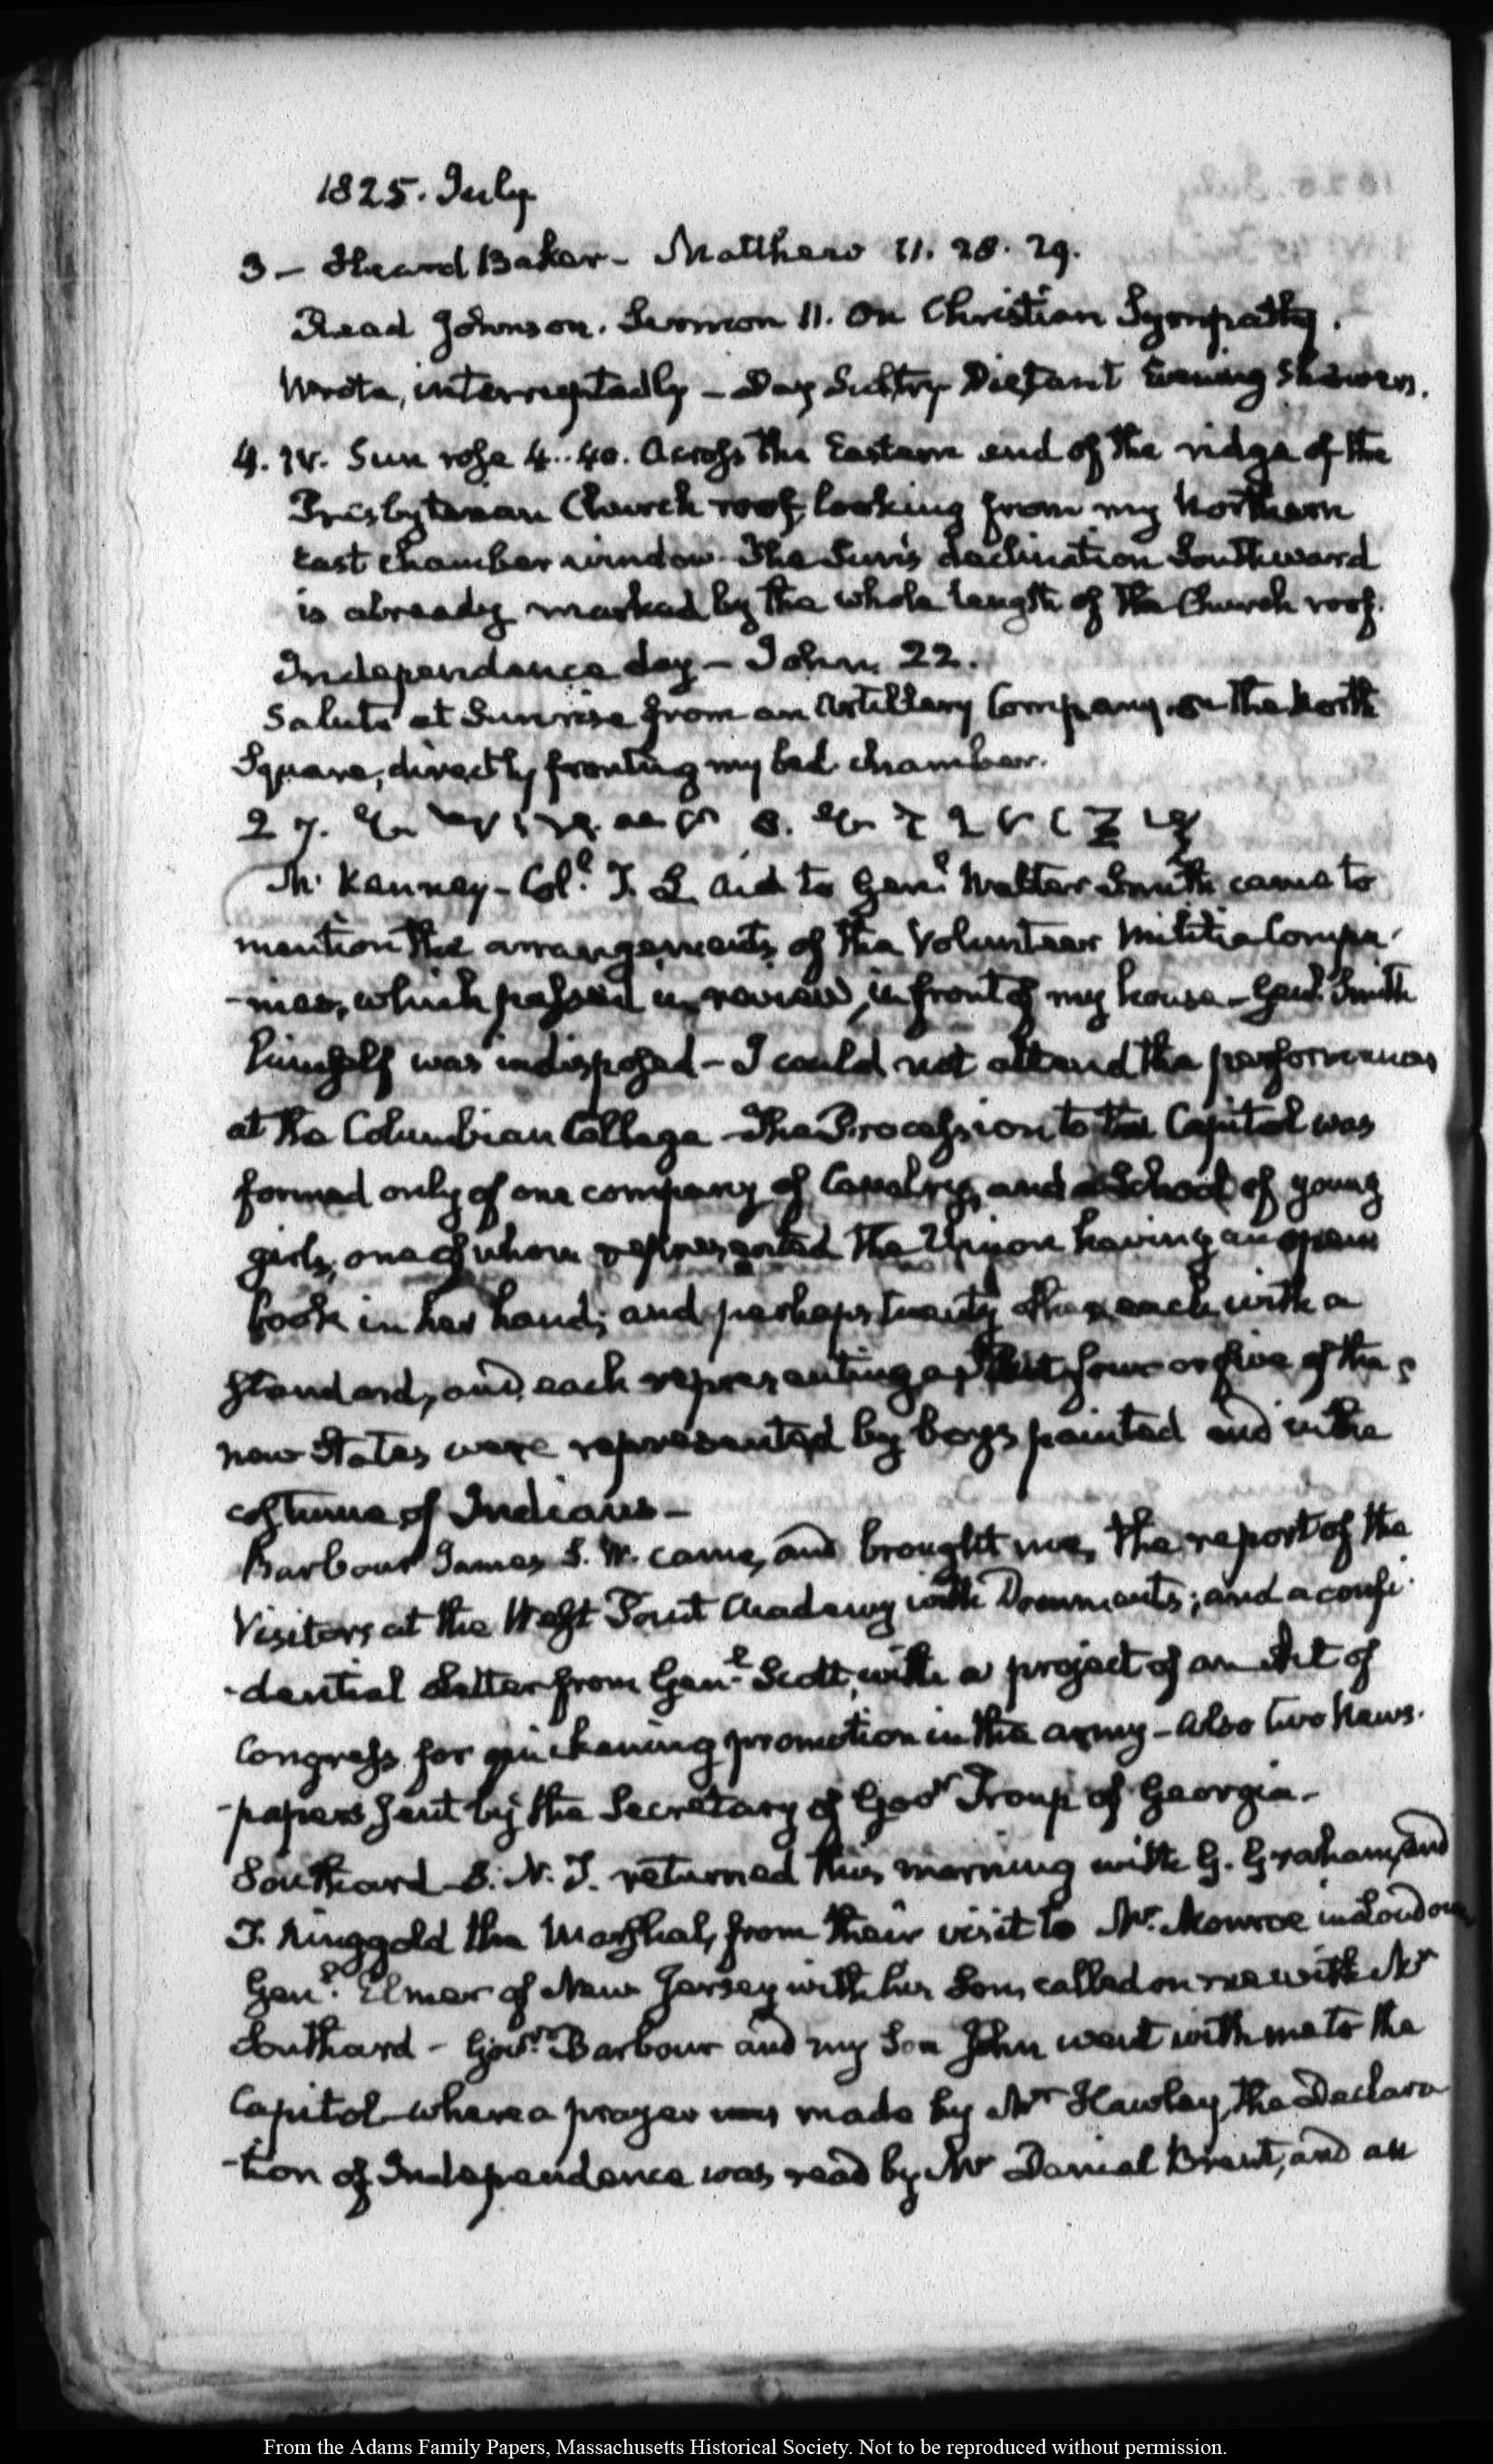 1825. July
3 – Heard Baker – Matthew 11. 28. 29.
Read Johnson. Sermon 11. On Christian Sympathy.
Wrote, interruptedly – Day Sultry Distant Evening Showers.
4. IV. Sun rose 4..40. Across the Eastern end of the ridge of the
Presbyterian Church roof, looking from my Northern
East chamber window. The Sun's declination Southward
is already marked by the whole length of the Church roof.
Independance day – John. 22.
Salute at Sunrise from an Artillery Company, on the North
Square, directly fronting my bed chamber.
27.
McKenney – Col.l T. L. Aid to Gen.l Walter Smith came to
mention the arrangements of the Volunteer Militia Compa-
-nies, which passed in review, in front of my house – Gen.l Smith
himself was indisposed – I could not attend the performances
at the Columbian College – The Procession to the Capitol was
formed only of one company of Cavalry, and a School of young
girls, one of whom represented the Union having an open
book in her hand; and perhaps twenty others each with a
standard, and each representing a State four or five of the
new States were represented by boys painted and in the
costume of Indians –
Barbour James S. W. came, and brought me, the report of the
Visitors at the West Point Academy with Documents; and a confi-
-dential Letter from Gen.l Scott, with a project of an Act of
Congress for quickening promotion in the army – also two News-
-papers sent by the Secretary of Gov.r Troup of Georgia –
Southard S. N. J. returned this morning with G. Graham, and
T. Ringgold the Marshal, from their visit to Mr. Monroe in Loudoun
Gen.l Elmer of New Jersey with his Son, called on me with Mr
Southard – Gov.r Barbour and my Son John went with me to the
Capitol where a prayer was made by Mr Hawley, the Declara-
-tion of Independence was read by Mr Daniel Brent, and an
From the Adams Family Papers, Massachusetts Historical Society. Not to be reproduced without permission.